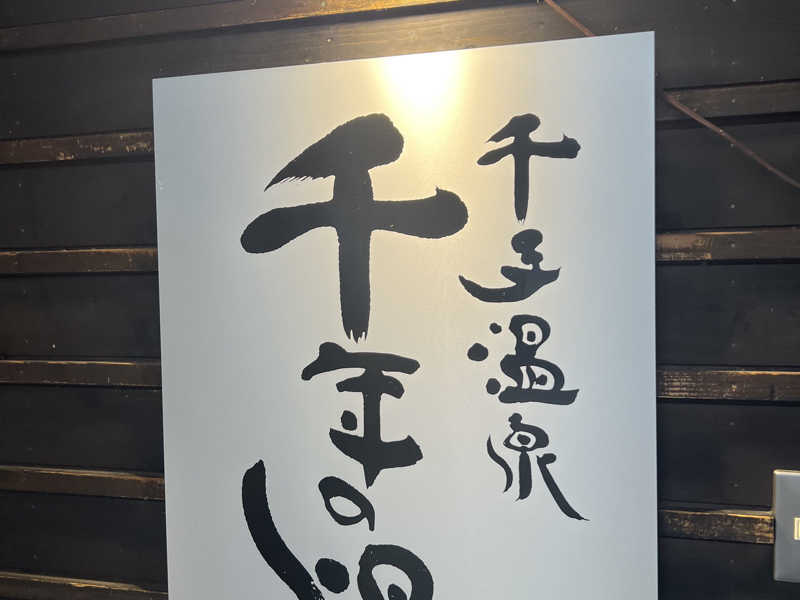 千手温泉
千年の湯